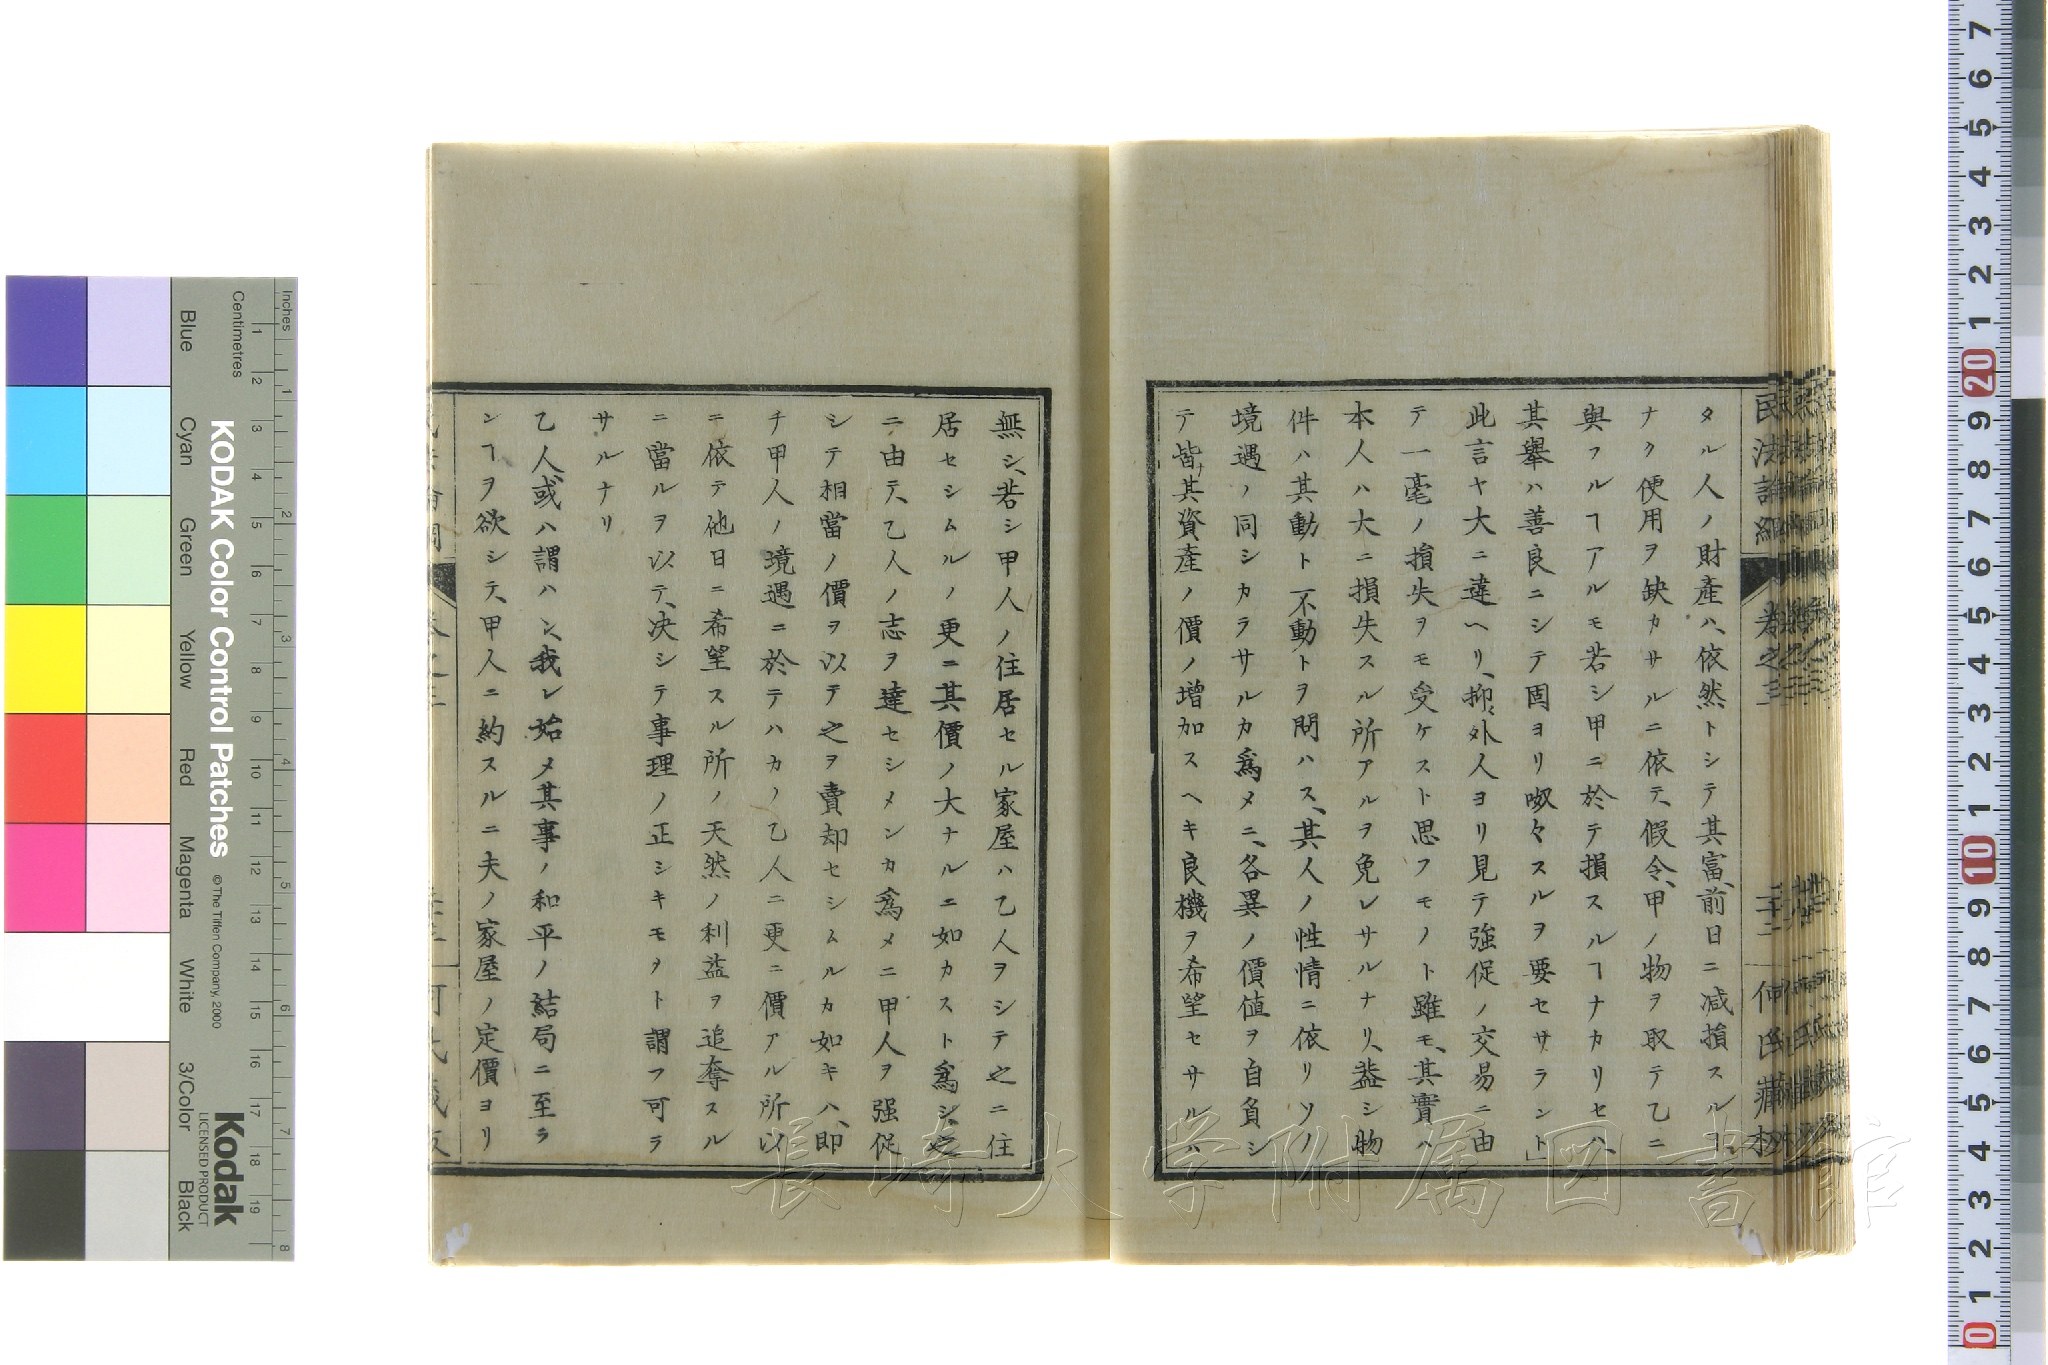 タル人ノ財產ハ、依然トシテ其富、前日ニ減損スルヿ
ナク便用ヲ缺カサルニ依テ、假令、甲ノ物ヲ取テ乙ニ
與フルヿアルモ若シ甲ニ於テ損スルヿナカリセハ
其擧ハ善良ニシテ固ヨリ呶々スルヲ要セサラント
此言ヤ大ニ違ヘリ、抑〻外人ヨリ見テ強促ノ交易ニ由
テ一毫ノ損失ヲモ受ケスト思フモノト雖モ、其實ハ
本人ハ大ニ損失スル所アルヲ免レサルナリ、蓋シ物
件ハ其動ト不動トヲ問ハス、其人ノ性情ニ依リツノ
境遇ノ同シカラサルカ爲メニ、各異ノ價値ヲ自負シ
テ皆其資產ノ價ノ增加スヘキ良機ヲ希望セサルハ
無シ、若シ甲人ノ住居セル家屋ハ乙人ヲシテ之ニ住
居セシムルノ更ニ其價ノ大ナルニ如カスト爲シ、之
ニ由テ、乙人ノ志ヲ達セシメンカ爲メニ甲人ヲ强促
シテ相當ノ價ヲ以テ之ヲ賣却セシムルカ如キハ、即
チ甲人ノ境遇ニ於テハカノ乙人ニ更ニ價アル所以
ニ依テ他日ニ希望スル所ノ天然ノ利益ヲ追奪スル
ニ當ルヲ以テ、决シテ事理ノ正シキモノト謂フ可ラ
サルナリ
乙人、或ハ謂ハン、我レ始メ其事ノ和平ノ結局ニ至ラ
ンヿヲ欲シテ、甲人ニ約スルニ夫ノ家屋ノ定價ヨリ
民法論綱 卷之三 二十二 何氏藏板
KODAK Color Control Patches
© The Tiffen Company, 2000
Kodak
LICENSED PRODUCT
Inches
Centimetres
Blue Cyan Green Yellow Red Magenta White 3/Color Black
1 2 3 4 5 6 7 8
1 2 3 4 5 6 7 8 9 10 11 12 13 14 15 16 17 18 19
7 6 5 4 3 2 1 20 9 8 7 6 5 4 3 2 1 10 9 8 7 6 5 4 3 2 1 0
長崎大学附属図書館